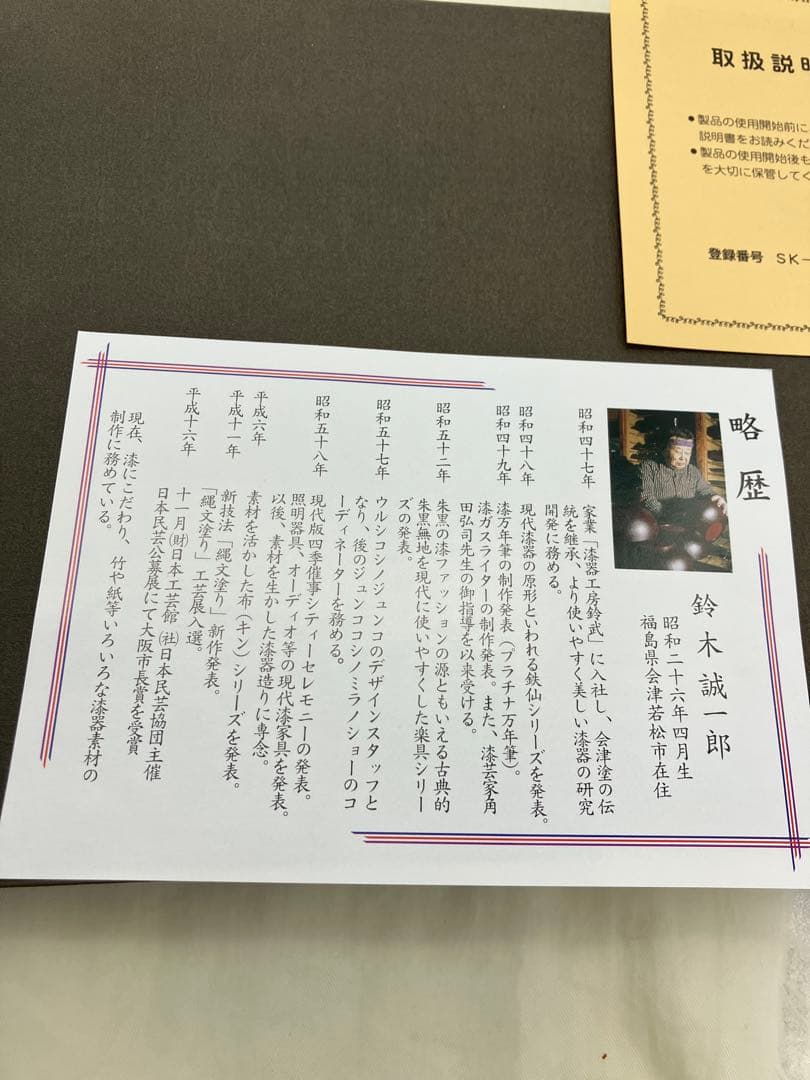 取扱説明
●製品の使用開始前に
説明書をお読みくだ
●製品の使用開始後も
を大切に保管してく
登録番号 SK-
略歴
鈴木誠一郎
昭和二十六年四月生
福島県会津若松市在住
昭和四十七年 家業「漆器工房鈴武」に入社し、会津塗の伝
統を継承、より使いやすく美しい漆器の研究
開発に務める。
昭和四十八年 現代漆器の原形といわれる鉄仙シリーズを発表。
昭和四十九年 漆万年筆の制作発表(プラチナ万年筆)。
漆ガスライターの制作発表。また、漆芸家角
田弘司先生の御指導を以来受ける。
昭和五十二年 朱黒の漆ファッションの源ともいえる古典的
朱黒無地を現代に使いやすくした楽具シリー
ズの発表。
昭和五十七年 ウルシコシノジュンコのデザインスタッフと
なり、後のジュンココシノミラノショーのコ
ーディネーターを務める。
昭和五十八年 現代版四季催事シティーセレモニーの発表。
照明器具、オーディオ等の現代漆家具を発表。
以後、素材を生かした漆器造りに専念。
平成六年 素材を活かした布(キン)シリーズを発表。
平成十一年 新技法「縄文塗り」新作発表。
「縄文塗り」工芸展入選。
平成十六年 十一月(財)日本工芸館(社)日本民芸協団主催
日本民芸公募展にて大阪市長賞を受賞
現在、漆にこだわり、竹や紙等いろいろな漆器素材の
制作に務めている。